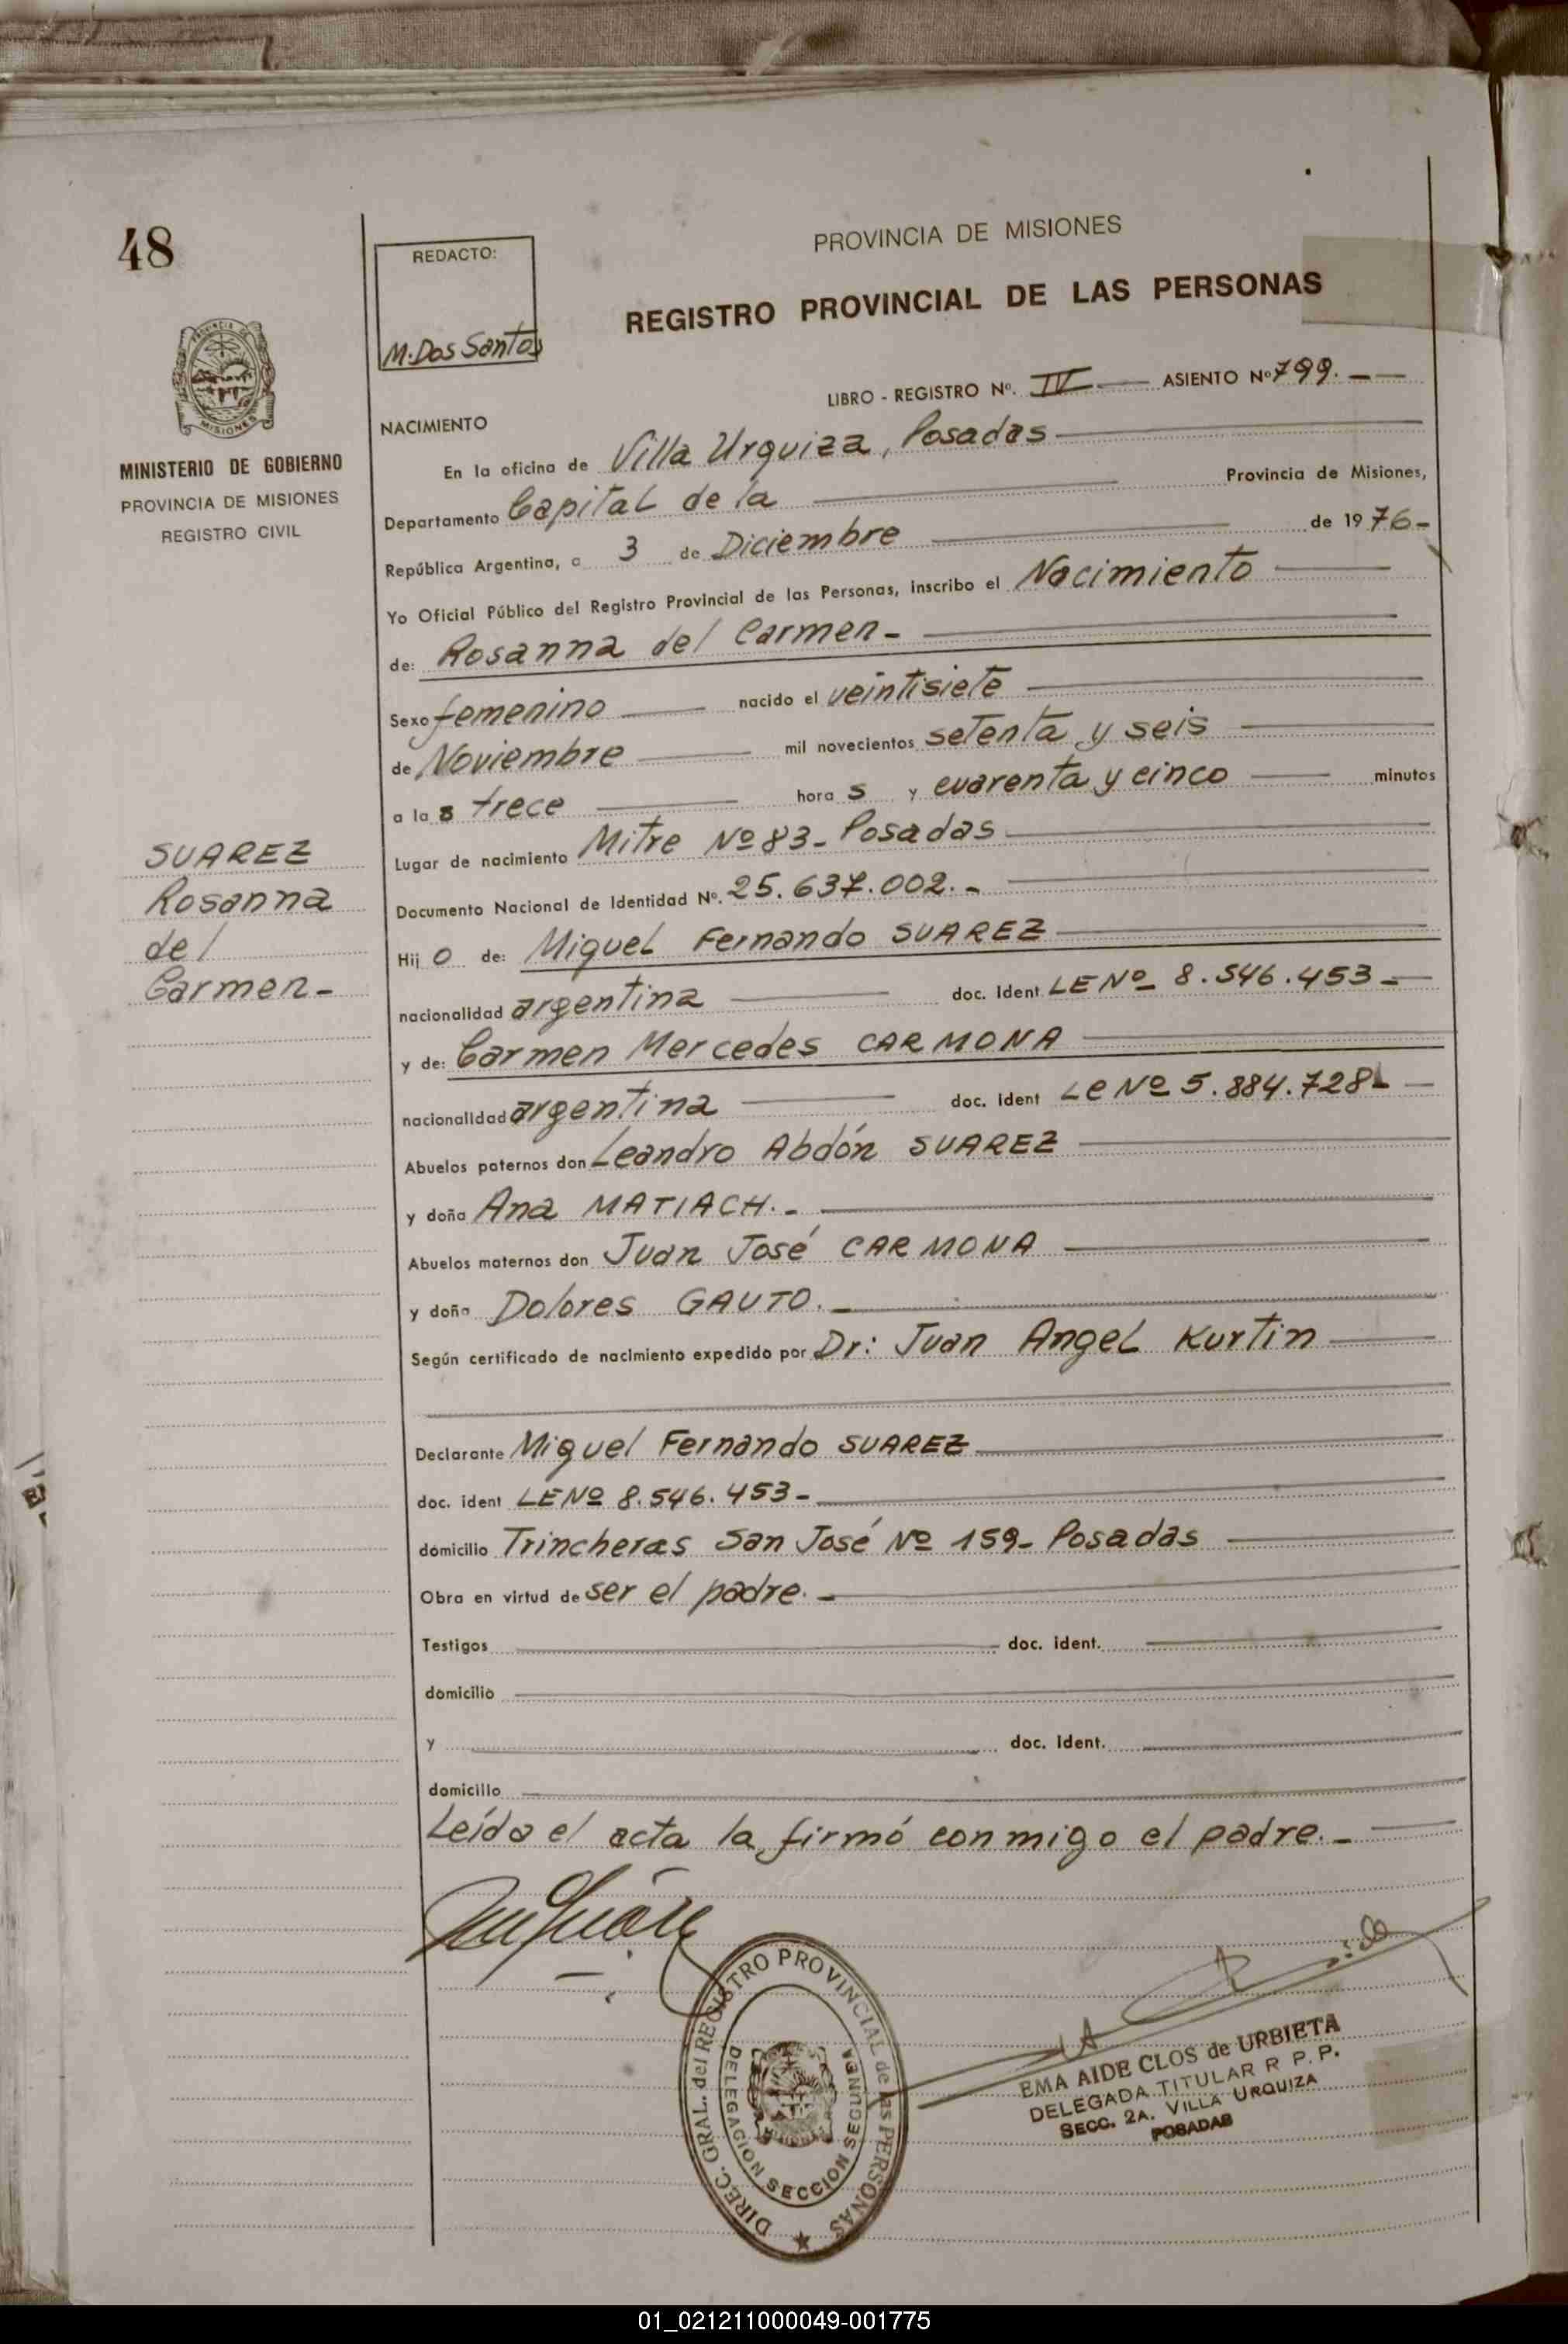 48
REDACTO:
M. Dos Santos
PROVINCIA DE MISIONES
REGISTRO PROVINCIAL DE LAS PERSONAS
MISIONES
MINISTERIO DE GOBIERNO
PROVINCIA DE MISIONES
REGISTRO CIVIL
LIBRO - REGISTRO Nº. IV — ASIENTO Nº 799. — —
NACIMIENTO
En la oficina de Villa Urquiza, Posadas
Departamento Capital de la Provincia de Misiones,
República Argentina, a 3 de Diciembre de 1976-
Yo Oficial Público del Registro Provincial de las Personas, inscribo el Nacimiento
de: Rosanna del Carmen-
Sexo femenino nacido el veintisiete
de Noviembre mil novecientos setenta y seis
a las trece horas y cuarenta y cinco minutos
Lugar de nacimiento Mitre Nº 83- Posadas
Documento Nacional de Identidad Nº. 25.637.002.-
Hijo de: Miguel Fernando SUAREZ
nacionalidad argentina doc. ident LE Nº 8.546.453-
y de: Carmen Mercedes CARMONA
nacionalidad argentina doc. ident LC Nº 5.884.728-
Abuelos paternos don Leandro Abdón SUAREZ
y doña Ana MATIACH.-
Abuelos maternos don Juan José CARMONA
y doña Dolores GAUTO.-
Según certificado de nacimiento expedido por Dr: Juan Angel Kurtin
Declarante Miguel Fernando SUAREZ
doc. ident LE Nº 8.546.453-
domicilio Trincheras San José Nº 159- Posadas
Obra en virtud de ser el padre.-
Testigos doc. ident.
domicilio
y doc. ident.
domicilio
Leída el acta la firmó conmigo el padre.-
SUAREZ
Rosanna
del
Carmen-
DIREC. GRAL. del REGISTRO PROVINCIAL de las PERSONAS
DELEGACION SECCION SEGUNDA
EMA AIDE CLOS de URBIETA
DELEGADA TITULAR R P. P.
SECC. 2A. VILLA URQUIZA
POSADAS
01_021211000049-001775